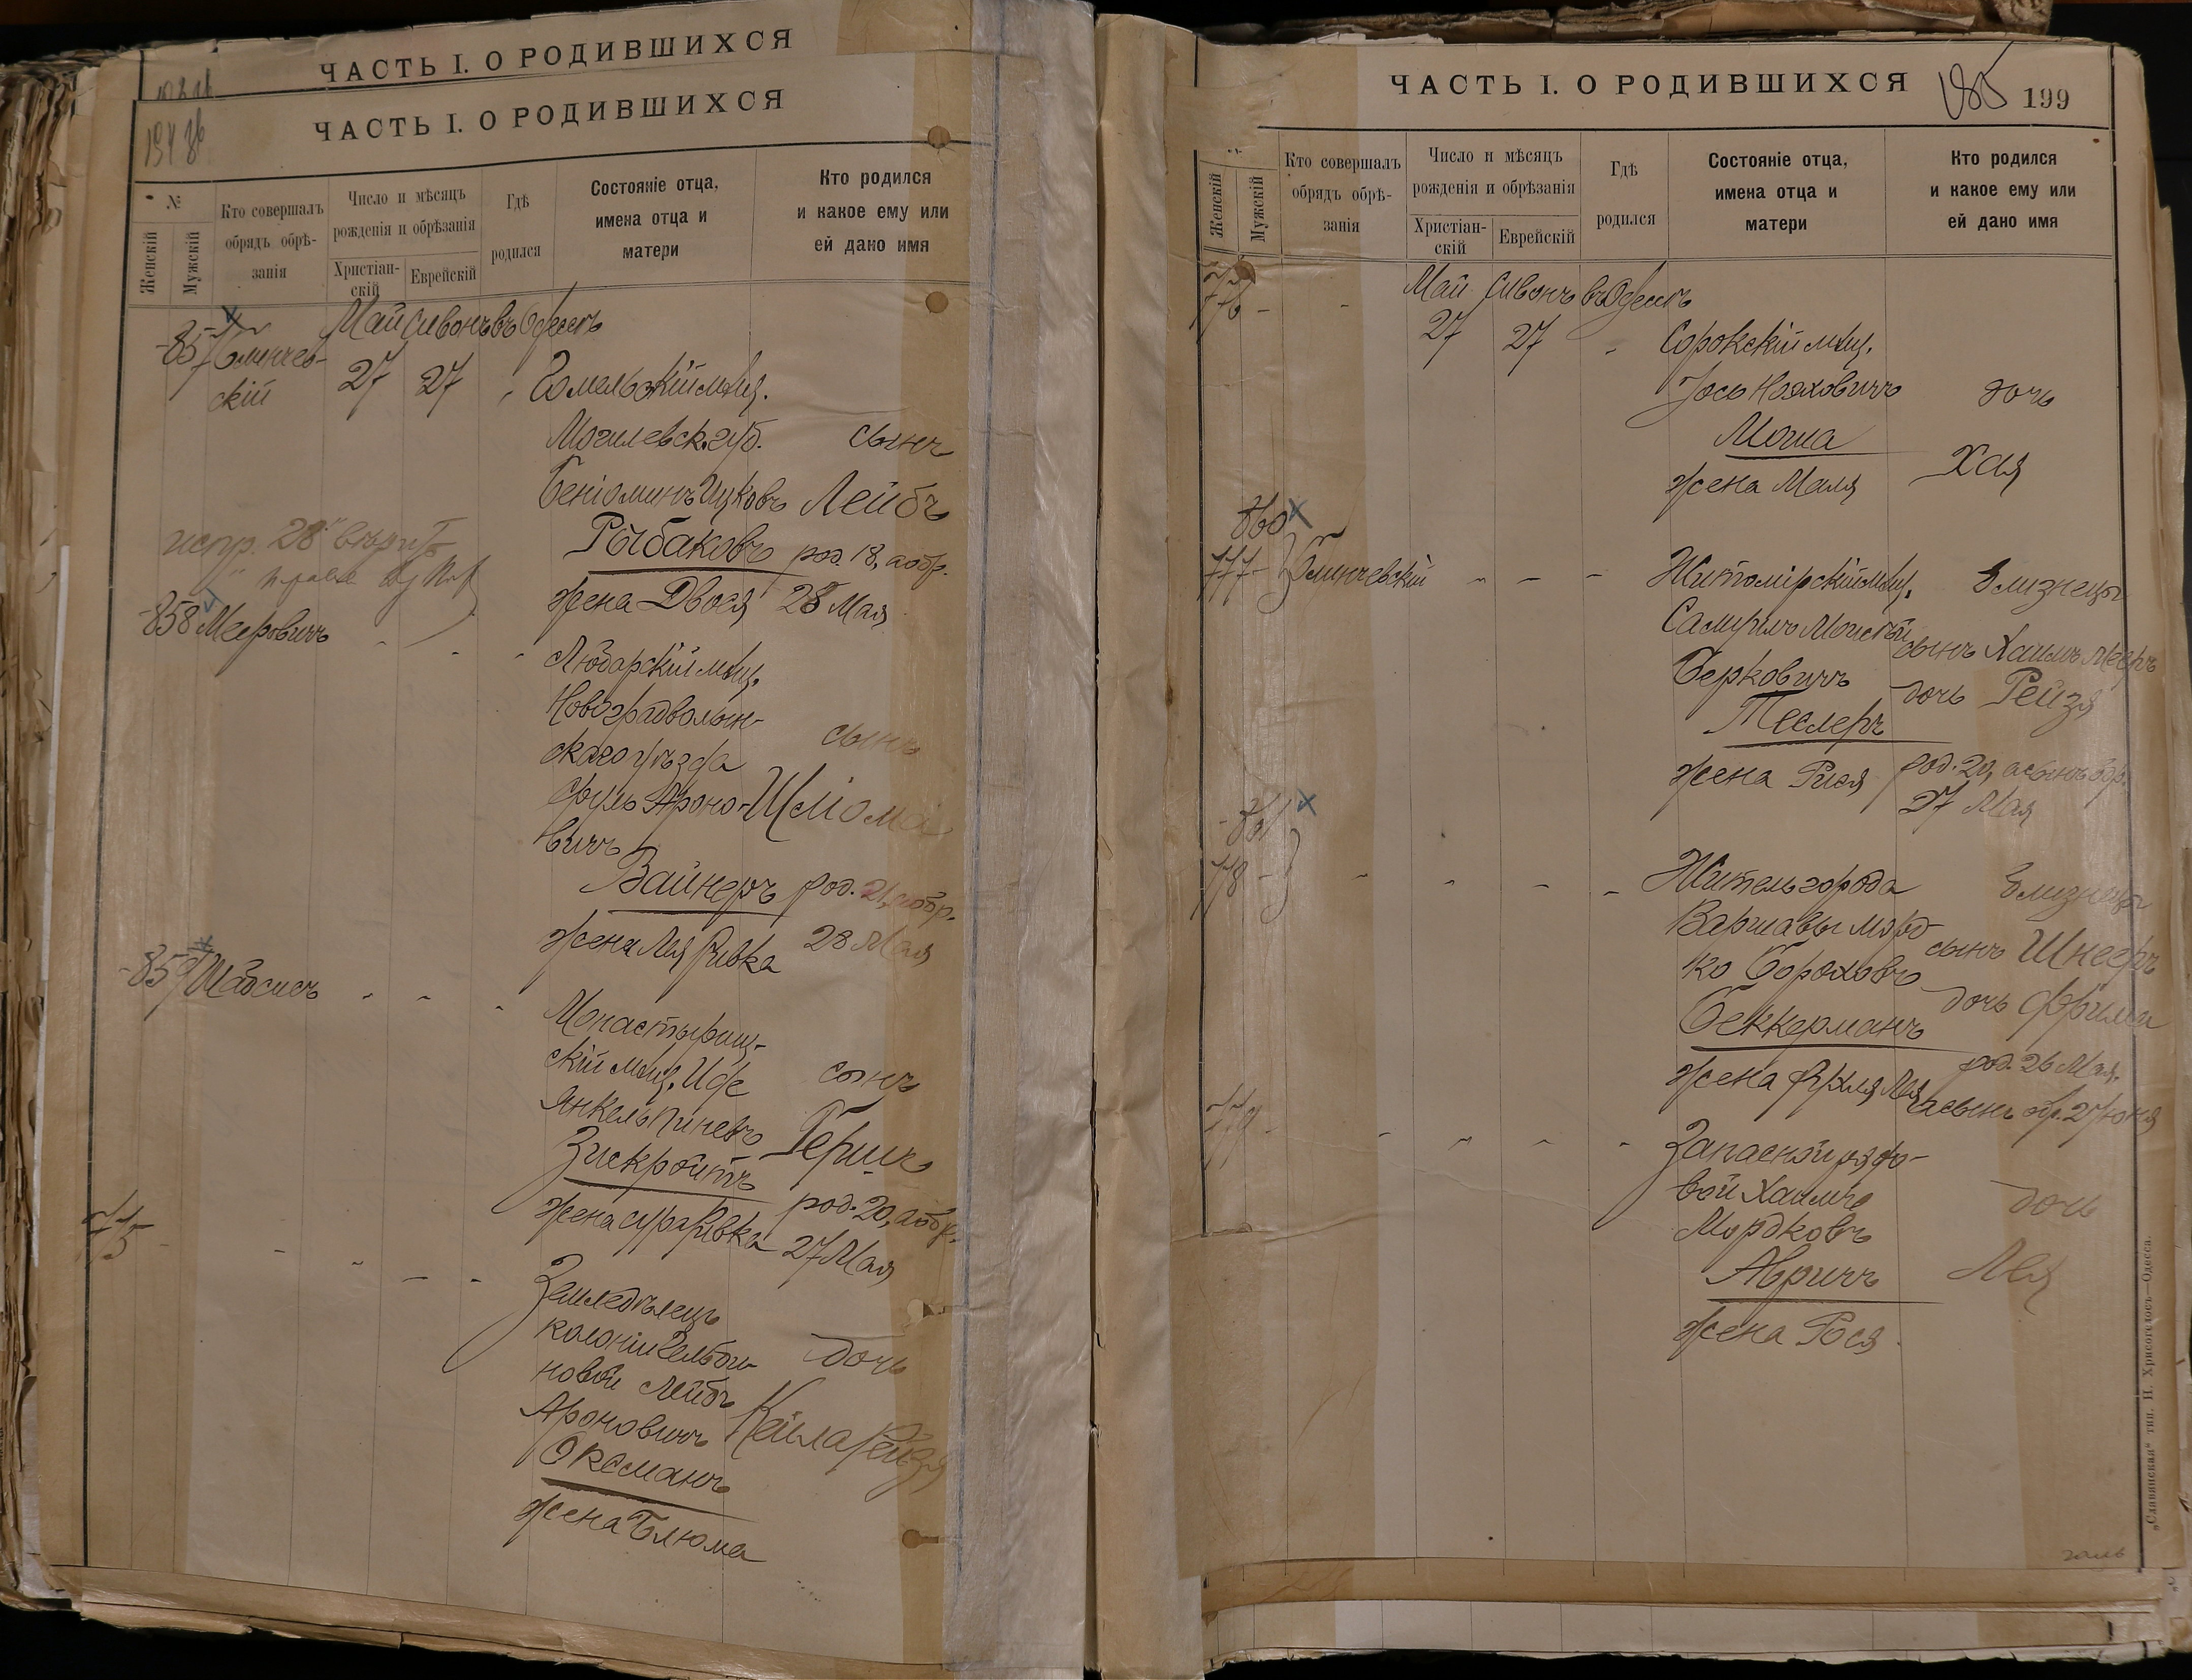 ЧАСТЬ I. О РОДИВШИХСЯ
ЧАСТЬ I. О РОДИВШИХСЯ
№
Женскій
Мужскій
Кто совершалъ
обрядъ обрѣ-
занія
Число и мѣсяцъ
рожденія и обрѣзанія
Христіан-
скій
Еврейскій
Гдѣ
родился
Состояніе отца,
имена отца и
матери
Кто родился
и какое ему или
ей дано имя
Май Сивонъ въ Одессѣ
857
скій
27 27
Гомельскій мѣщ.
Могилевск. губ.
Беніоминъ Ицковъ
Рыбаковъ
жена Двося
сынъ
Лейбъ
род. 18, а обр.
28 Мая
испр. 28
858 Мееровичъ
Любарскій мѣщ.
Новоградволын-
скаго уѣзда
Сруль Ароно-
вичъ
Вайнеръ
жена Лея Ривка
сынъ
Шліома
род. 21, а обр.
28 Мая
859 Шабсисъ
Монастырищ-
скій мѣщ. Иде
Янкель Пиневъ
Зискройтъ
жена Сура Ривка
сынъ
Гершъ
род. 20, а обр.
27 Мая
775
Земледѣлецъ
колоніи Гельби-
новой Лейбъ
Ароновичъ
Оксманъ
жена Блюма
дочь
Кейла Рейзя
ЧАСТЬ I. О РОДИВШИХСЯ
185 199
Женскій
Мужскій
Кто совершалъ
обрядъ обрѣ-
занія
Число и мѣсяцъ
рожденія и обрѣзанія
Христіан-
скій
Еврейскій
Гдѣ
родился
Состояніе отца,
имена отца и
матери
Кто родился
и какое ему или
ей дано имя
Май Сивонъ въ Одессѣ
776
27 27
Сорокскій мѣщ.
Іось Нояховичъ
Моша
жена Маля
дочь
Хая
860
777
Житомірскій мѣщ.
Самуилъ Моисей
Берковичъ
Теслеръ
жена Рися
близнецы
сынъ Хаимъ Мееръ
дочь Рейзя
род. 20, а сынъ обр.
27 Мая
861
778
Житель города
Варшавы Морд-
ко Бороховъ
Беккерманъ
жена Фрхля Лея
близнецы
сынъ Шнееръ
дочь
род. 26 Мая,
а сынъ обр. 2 Июня
779
Запасной рядо-
вой Хаимъ
Мордковъ
Авричъ
жена Рося
дочь
Лея
„Славянская“ тип. Н. Хрисогелосъ—Одесса.